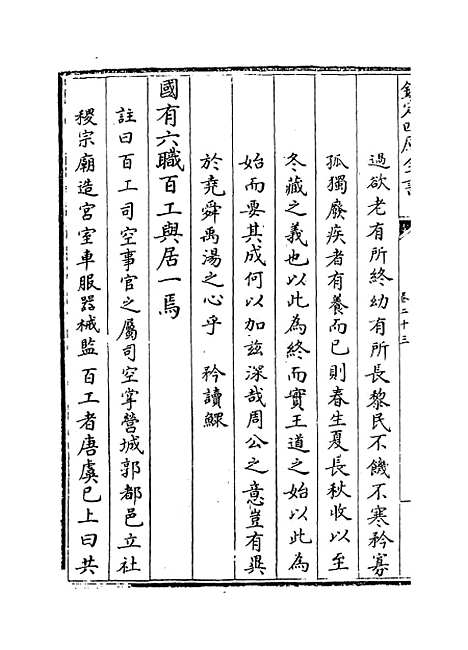 欽定四庫全書
卷二十三
過欲老有所終幼有所長黎民不饑不寒矜寡
孤獨廢疾者有養而已則春生夏長秋收以至
冬藏之義也以此為終而實王道之始以此為
始而要其成何以加兹深哉周公之意豈有異
於堯舜禹湯之心乎　矜讀鰥
國有六職百工與居一焉
註曰百工司空事官之屬司空掌營城郭都邑立社
稷宗廟造宮室車服器械監百工者唐虞已上曰共